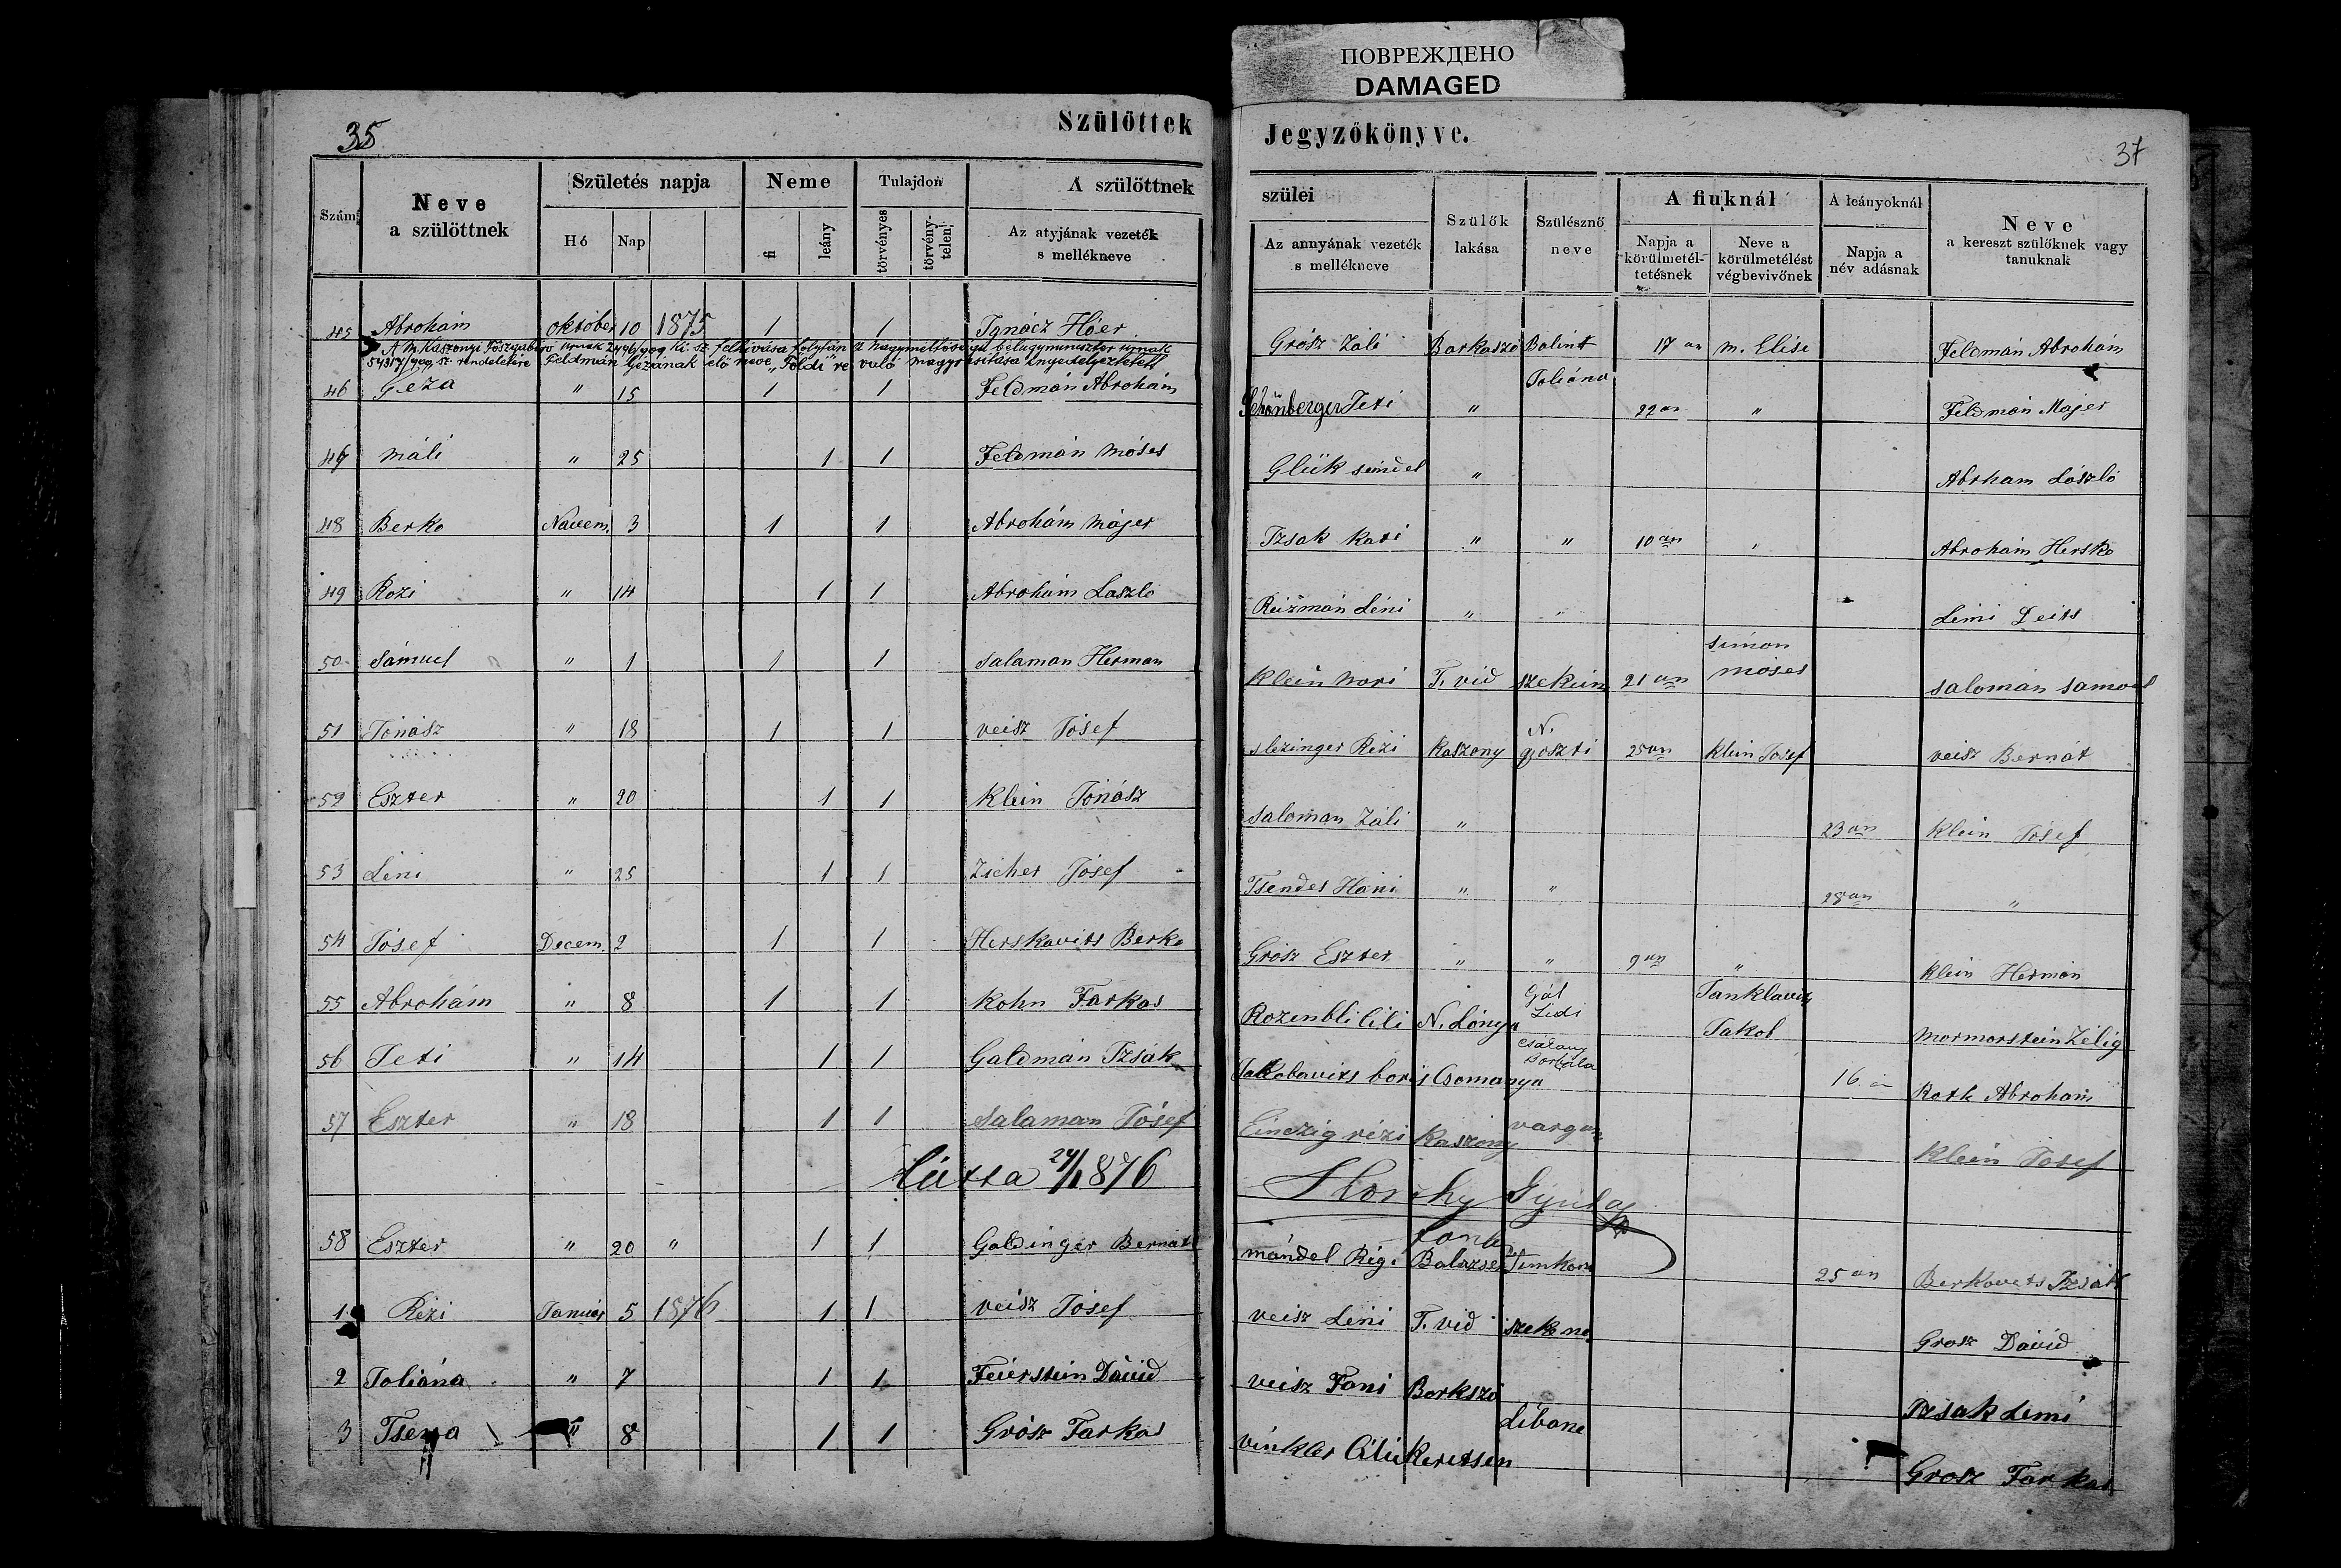 ПОВРЕЖДЕНО
DAMAGED
35 Szülöttek Jegyzőkönyve. 37
Szám Neve a szülöttnek Születés napja Hó Nap Neme fi leány Tulajdon törvényes törvénytelen A szülöttnek Az atyjának vezeték s mellékneve
szülei Az annyának vezeték s mellékneve Szülők lakása Szülésznő neve A fiuknál Napja a körülmetéltetésnek Neve a körülmetélést végbevivőnek A leányoknál Napja a név adásnak Neve a kereszt szülőknek vagy tanuknak
45 Abrohám október 10 1875 1 1 Ignácz Hóer Grósz Záli Barkaszó Balint 17 an m. Elise Feldmán Abrohám
A m. Kaszonyi Főszolgabiró urnak ki sz. felhivása folytán a nagyméltóságu belügyminiszter urnak
sz. rendeletére Feldmán Gézának elő neve "Földi" re való magyarositása engedélyeztetett
46 Géza " 15 1 1 Feldmán Abrohám Schönberger Teti " Toliána 22 an " Feldmán Majer
47 Máli " 25 1 1 Feldmán Móses Glük seindel " Abrham László
48 Berko Navem. 3 1 1 Abrohám Májer Izsak Kati " " 10 an " Abrohám Hersko
49 Rozi " 14 1 1 Abrohám Laszlo Reizman Léni " " Limi Deits
50 Sámuel " 1 1 1 Salaman Herman Klein Mari T. vid szekein 21 an Simon Móses Saloman Samuel
51 Jónász " 18 1 1 veisz Jósef slezinger Rézi Kaszony N. goszti 25 an Klein Josef veisz Bernát
52 Eszter " 20 1 1 Klein Jónász Saloman Záli " 23 an Klein Jósef
53 Léni " 25 1 1 Zicher Jósef Tsendes Háni " " 28 an "
54 Jósef Decem. 2 1 1 Herskavits Berko Grósz Eszter " " 9 an " Klein Hermán
55 Abrohám " 8 1 1 Kohn Farkas Rozenbli lili N. Lónya Gál Lidi Tanklavits Jakob Mormorstein Zélig
56 Teti " 14 1 1 Galdmán Izsák Jakobavits boris Csomanya Borbála 16 án Roth Abrohám
57 Eszter " 18 1 1 Salaman Jósef Einczig rézi Kaszony vargane Klein Josef
Látta 24/1 876 Horthy Gyula
58 Eszter " 20 " 1 1 Galdinger Bernat mándel Rég. Balazser Simkone 25 an Berkovets Izsák
1 Rézi Január 5 1876 1 1 veisz Jósef veisz Léni T. vid szekene Grosz Dávid
2 Toliána " 7 1 1 Feierstein Dávid veisz Fáni Borkszó Izsak Limi
3 " 8 1 1 Grósz Farkas vinkler Cili Keretsen Libane Grosz Farkas